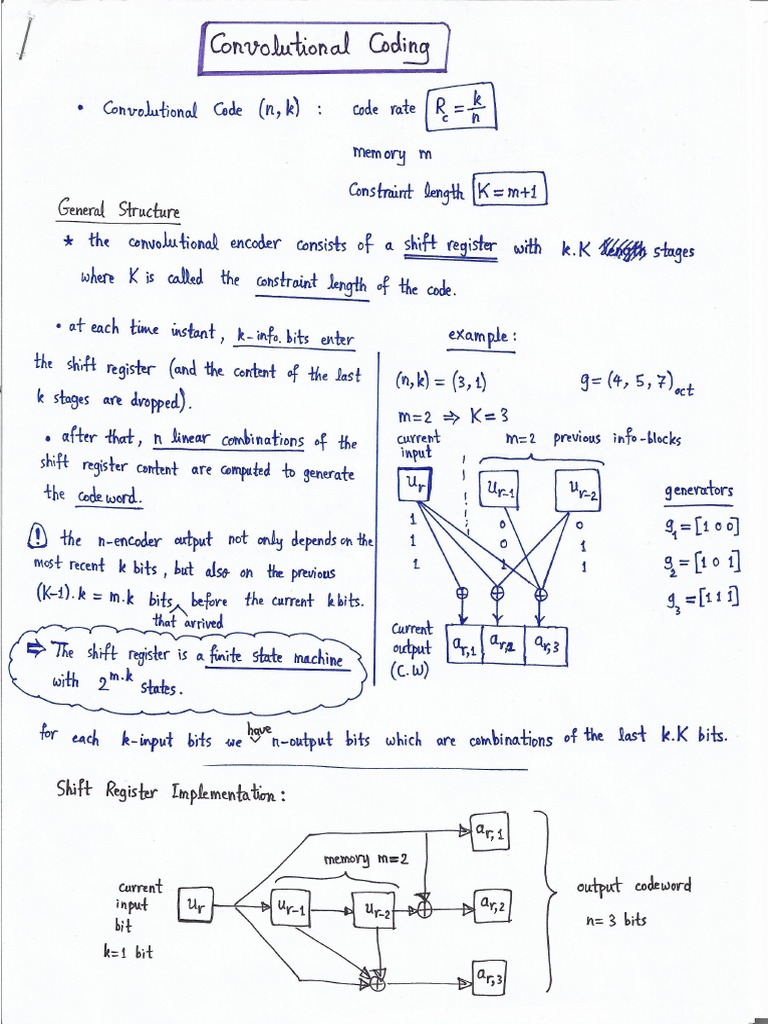 Convolutional Coding
• Convolutional Code (n, k) : code rate R_c = k/n
memory m
Constraint length K = m+1
General Structure
* the convolutional encoder consists of a shift register with k.K stages
where K is called the constraint length of the code.
• at each time instant, k-info. bits enter
the shift register (and the content of the last
k stages are dropped).
• after that, n linear combinations of the
shift register content are computed to generate
the codeword.
! the n-encoder output not only depends on the
most recent k bits, but also on the previous
(K-1).k = m.k bits that arrived before the current k bits.
⇒ The shift register is a finite state machine
with 2^{m.k} states.
example:
(n, k) = (3, 1) g = (4, 5, 7)_oct
m=2 ⇒ K = 3
current input m=2 previous info-blocks
u_r u_{r-1} u_{r-2} generators
1 0 0 g_1 = [1 0 0]
1 0 1 g_2 = [1 0 1]
1 1 1 g_3 = [1 1 1]
⊕ ⊕ ⊕
Current output (C.W) a_{r,1} a_{r,2} a_{r,3}
for each k-input bits we have n-output bits which are combinations of the last k.K bits.
Shift Register Implementation:
a_{r,1}
memory m=2
current input bit u_r u_{r-1} u_{r-2} ⊕ a_{r,2} output codeword
k=1 bit n= 3 bits
⊕ a_{r,3}